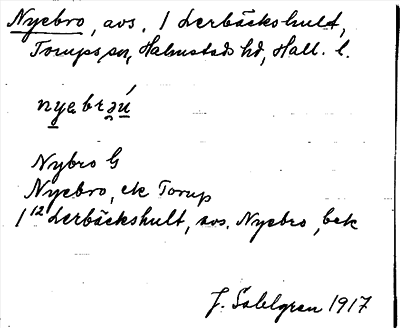 Nyebro, avs. 1 Lerbäckshult,
Torups sn, Halmstads hd, Hall. l.
Nybro G
Nyebro, ek Torup
1¹² Lerbäckshult, avs. Nyebro, bek
J. Sahlgren 1917